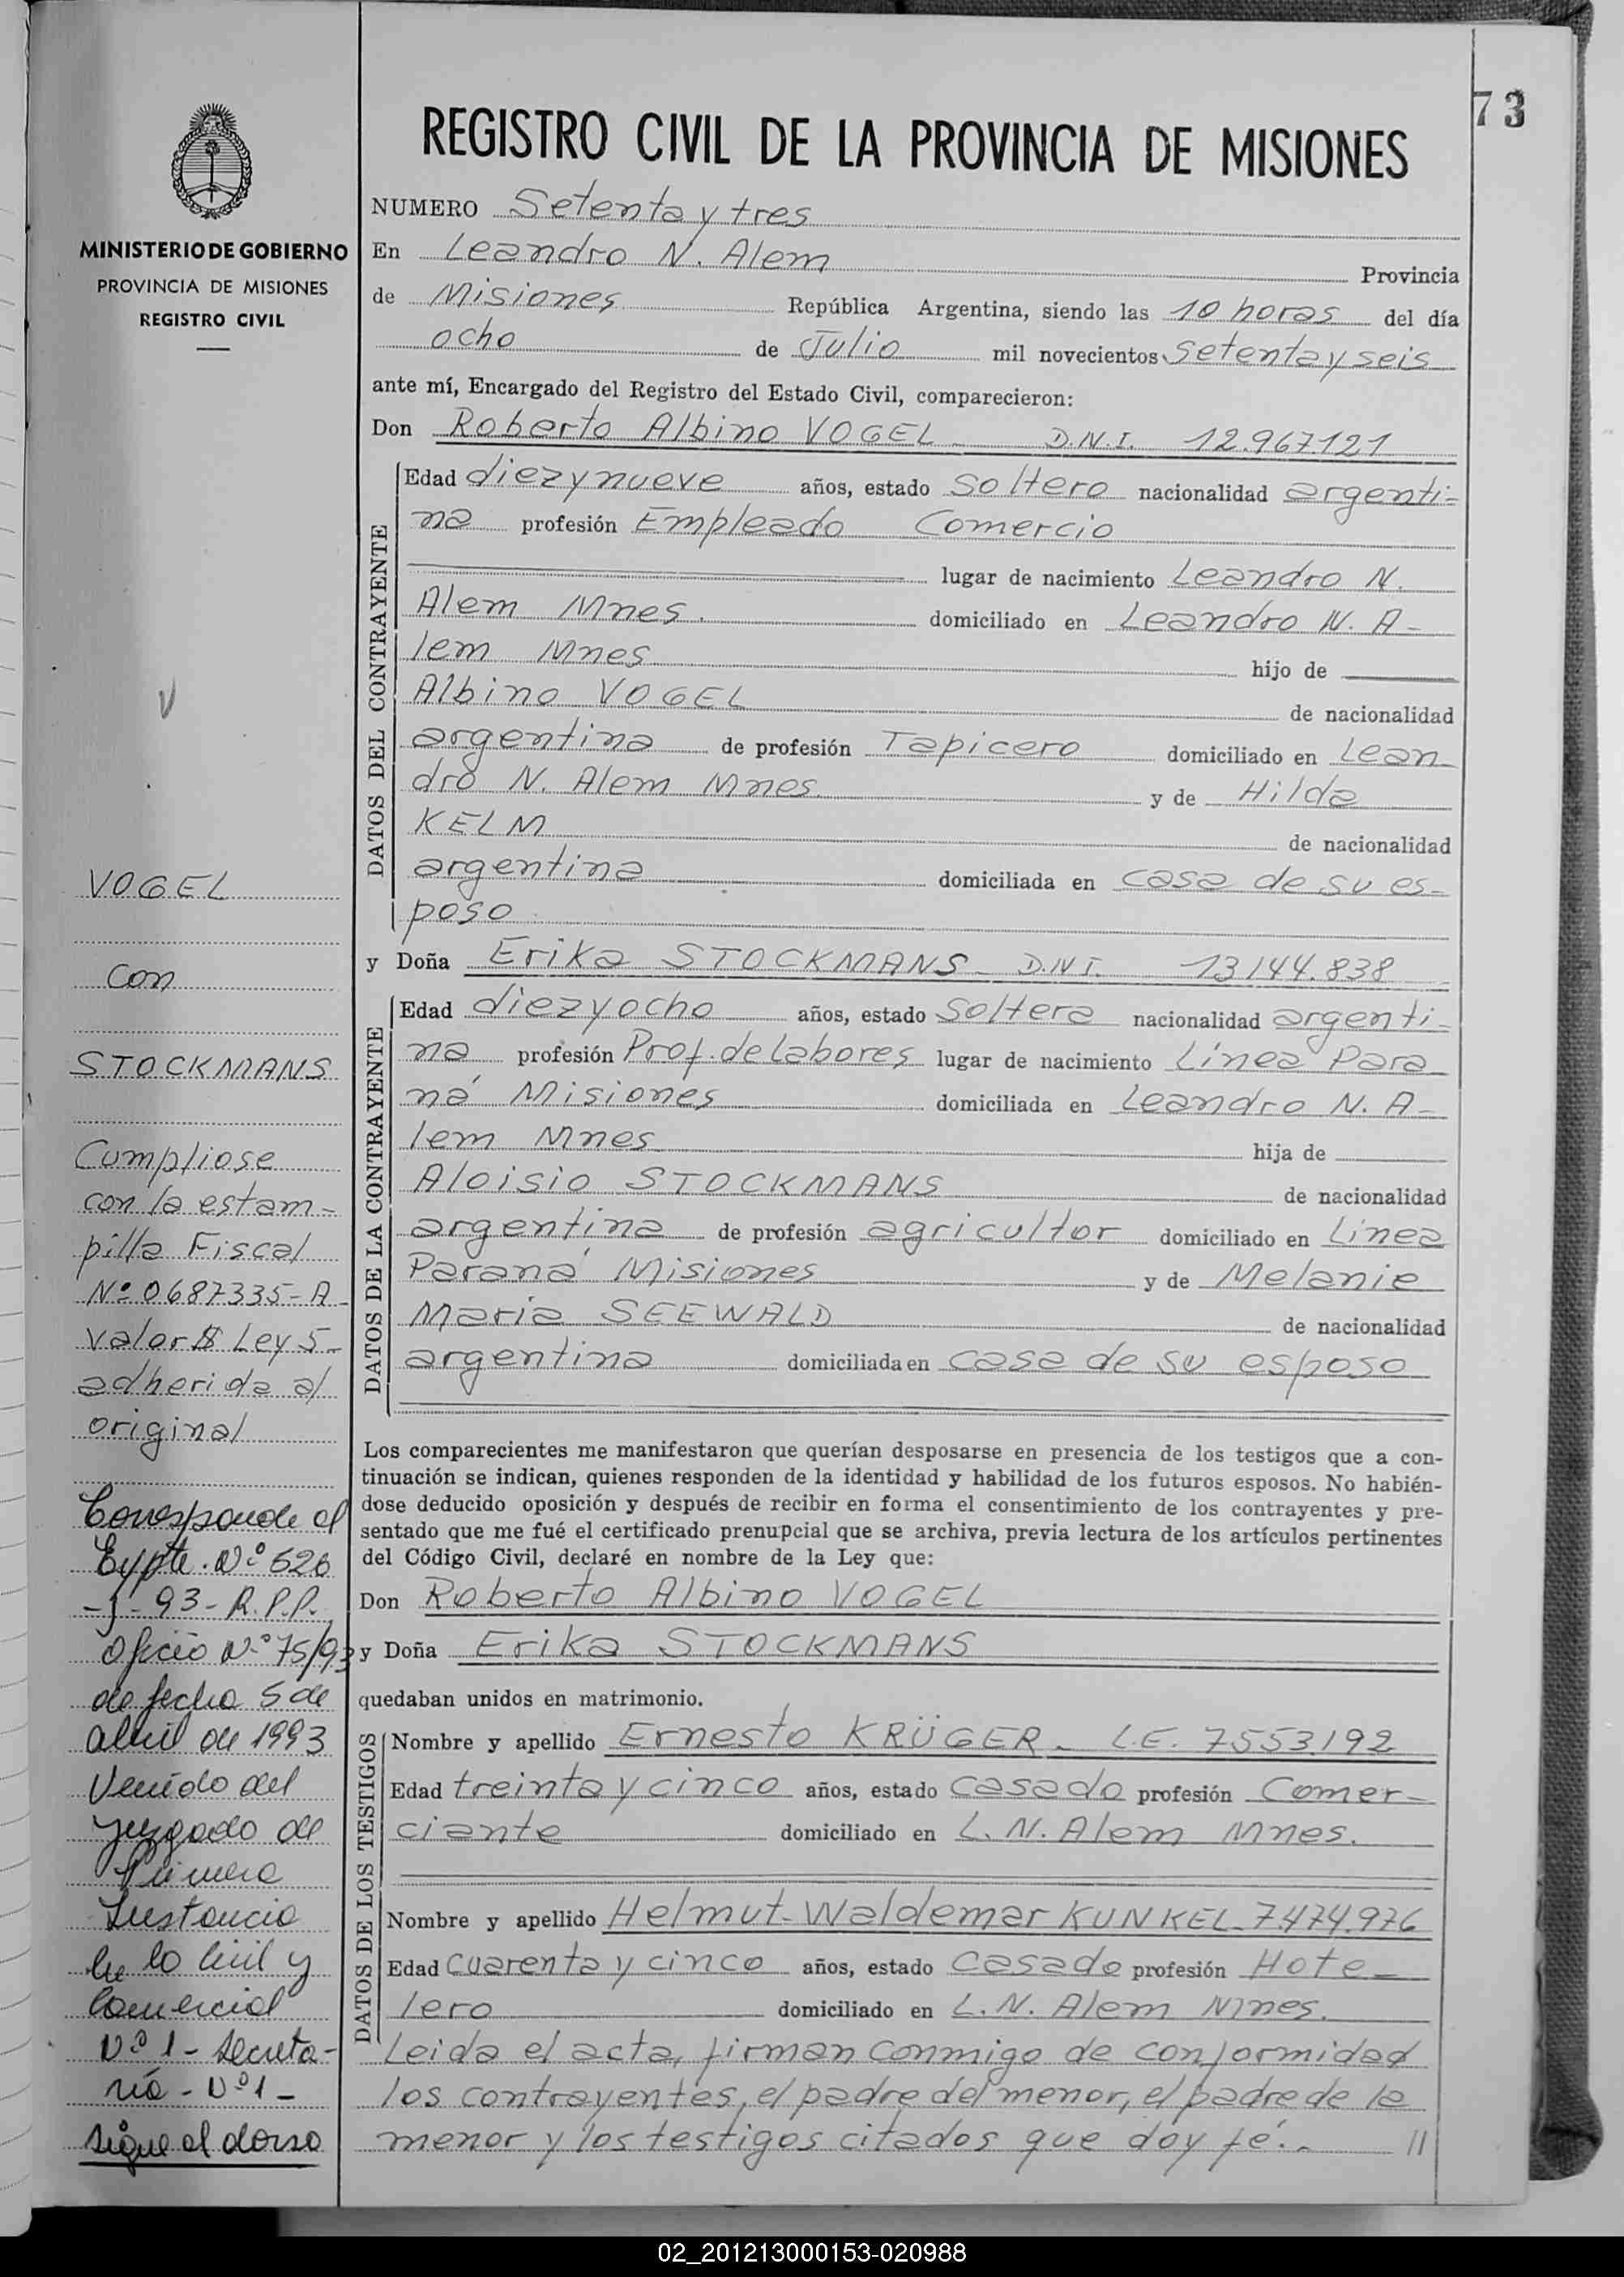 73
MINISTERIO DE GOBIERNO
PROVINCIA DE MISIONES
REGISTRO CIVIL
VOGEL
con
STOCKMANS
Cumpliose
con la estam-
pilla Fiscal
Nº 0687335-A
valor $ Ley 5-
adherida al
original
Corresponde al
Expte. Nº 526
- J - 93 - R.P.P.
Oficio Nº 75/93
de fecha 5 de
abril de 1993
Venido del
Juzgado de
Primera
Instancia
en lo Civil y
Comercial
Nº 1 - Secreta-
ría - Nº 1 -
sigue al dorso
REGISTRO CIVIL DE LA PROVINCIA DE MISIONES
NUMERO Setenta y tres
En Leandro N. Alem Provincia
de Misiones República Argentina, siendo las 10 horas del día
ocho de Julio mil novecientos setenta y seis
ante mí, Encargado del Registro del Estado Civil, comparecieron:
Don Roberto Albino VOGEL D.N.I. 12.967.121
DATOS DEL CONTRAYENTE
Edad diez y nueve años, estado soltero nacionalidad argenti-
na profesión Empleado Comercio
lugar de nacimiento Leandro N.
Alem Mnes. domiciliado en Leandro N. A-
lem Mnes hijo de
Albino VOGEL de nacionalidad
argentina de profesión Tapicero domiciliado en Lean
dro N. Alem Mnes y de Hilda
KELM de nacionalidad
argentina domiciliada en casa de su es-
poso
y Doña Erika STOCKMANS D.N.I. 13144.838
DATOS DE LA CONTRAYENTE
Edad diez y ocho años, estado Soltera nacionalidad argenti-
na profesión Prof. de Labores lugar de nacimiento Línea Para
ná Misiones domiciliada en Leandro N. A-
lem Mnes hija de
Aloisio STOCKMANS de nacionalidad
argentina de profesión agricultor domiciliado en Línea
Paraná Misiones y de Melanie
Maria SEEWALD de nacionalidad
argentina domiciliada en casa de su esposo
Los comparecientes me manifestaron que querían desposarse en presencia de los testigos que a con-
tinuación se indican, quienes responden de la identidad y habilidad de los futuros esposos. No habién-
dose deducido oposición y después de recibir en forma el consentimiento de los contrayentes y pre-
sentado que me fué el certificado prenupcial que se archiva, previa lectura de los artículos pertinentes
del Código Civil, declaré en nombre de la Ley que:
Don Roberto Albino VOGEL
y Doña Erika STOCKMANS
quedaban unidos en matrimonio.
DATOS DE LOS TESTIGOS
Nombre y apellido Ernesto KRÜGER - L.E. 7553.192
Edad treinta y cinco años, estado casado profesión Comer-
ciante domiciliado en L. N. Alem Mnes.
Nombre y apellido Helmut Waldemar KUNKEL 7.474.976
Edad cuarenta y cinco años, estado casado profesión Hote-
lero domiciliado en L. N. Alem Mnes.
Leida el acta, firman conmigo de conformidad
los contrayentes, el padre del menor, el padre de la
menor y los testigos citados que doy fé. - //
02_201213000153-020988